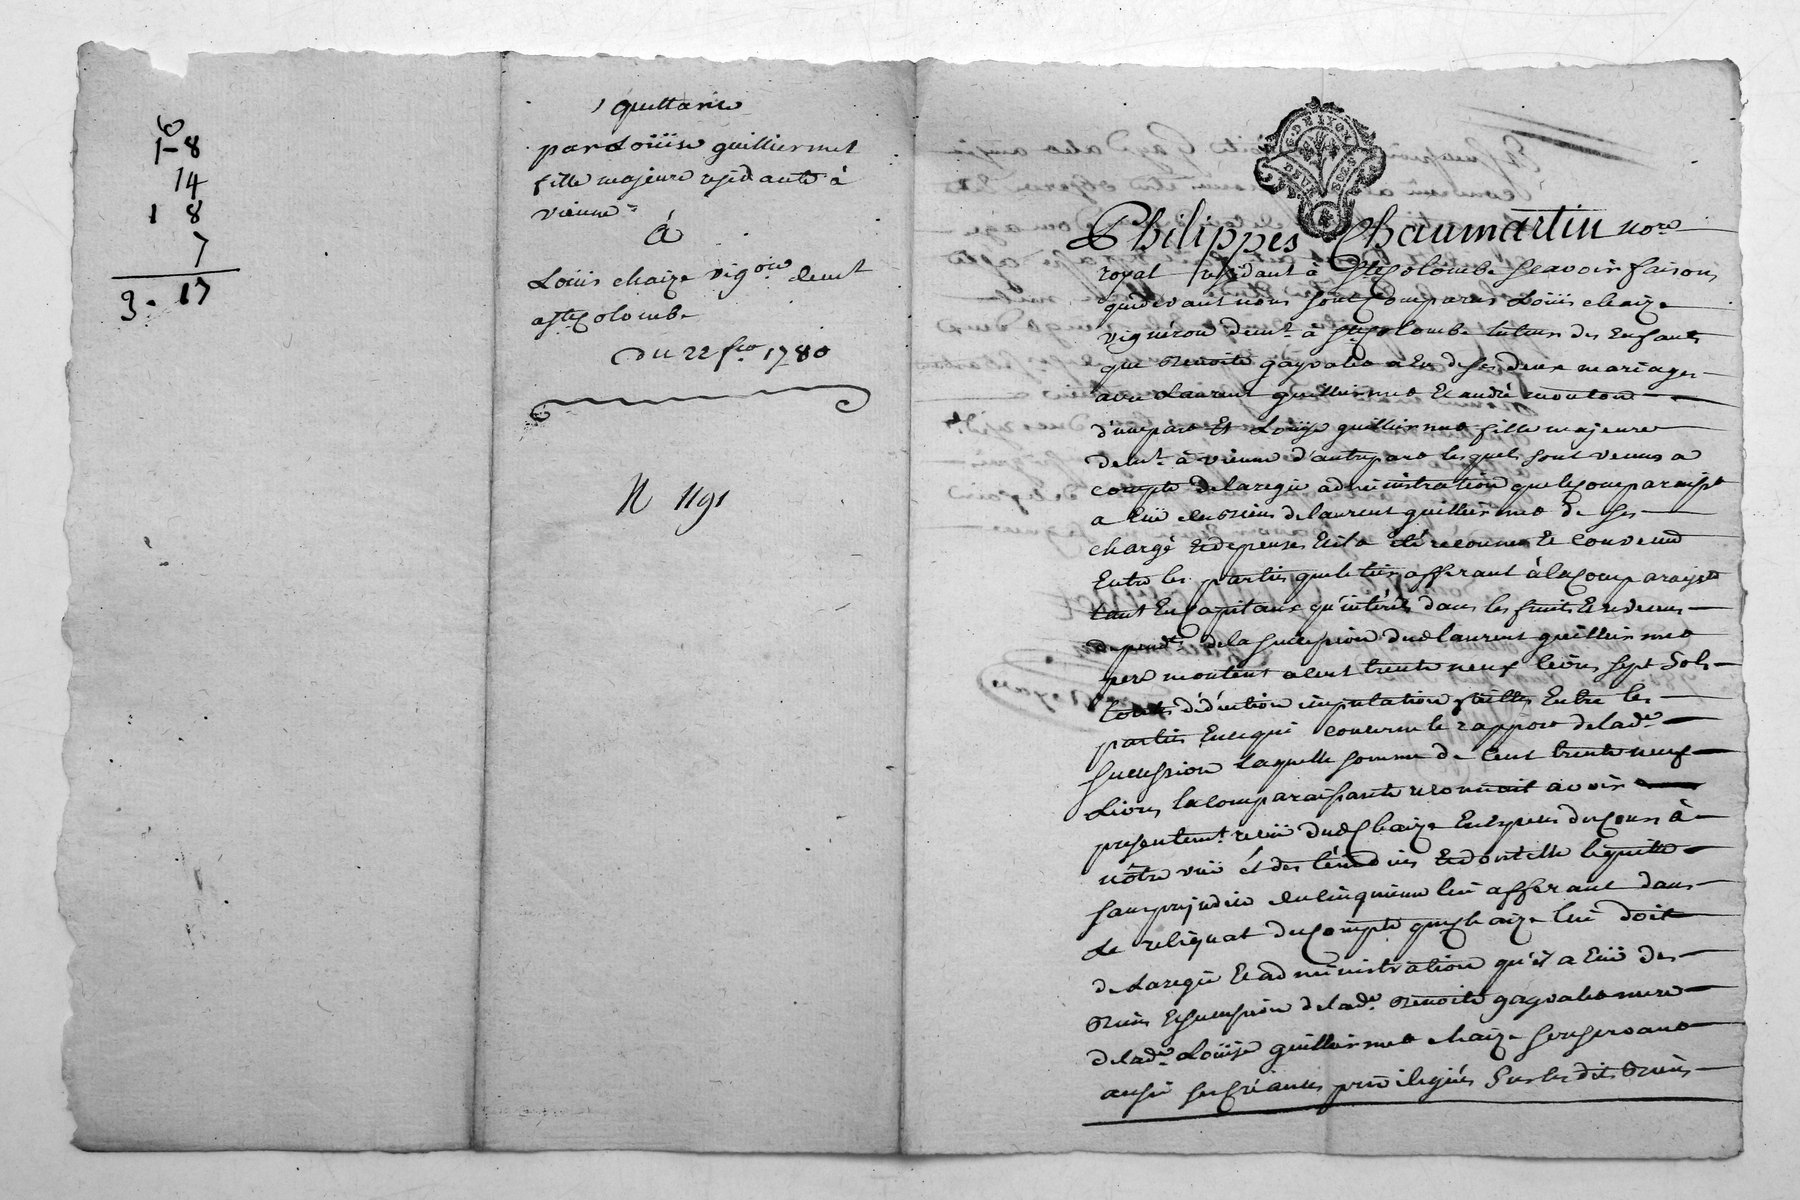 6
1-8
14
1 8
7
3. 17
quittance
par Loüise guilliermet
fille majeure residante à
vienne
à
Loüis chaize vig.on demt
a ste Colombe
du 22 fro 1780
N 1191
G. DE LYON
DEUX SOLS
Philippes Chaumartin nore
royal residant à Ste Colombe scavoir faisons
que devant nous sont Comparus Loüis chaize
vigneron demt à Ste Colombe tuteur des Enfants
que Benoite gayvallet a Eu de ses deux mariages
avec Laurent guilliermet Et andré mouton
d'une part Et Loüise guilliermet fille majeure
demt à vienne d'autre part lesquels sont venus a
compte de la regie administration que le Comparaisst
a Eüe des Biens de laurent guilliermet de ses
charge Et depenses Et il a été reconnu Et Convenu
Entre les parties que le tiers afferant à la Comparaisste
tant En Capitaux qu'intérêts dans les fruits Et revenus
dependts de la succession dud laurent guilliermet
pere montent a cent trente neuf livres sept Sols
toutes déduction imputation faittes Entre les
parties En ce qui concerne le rapport de lade
succession laquelle somme de Cent trente neuf
Livres la comparaissante reconnait avoir
presentemt reçüe dud Chaize En Especes du Cours à
nôtre vüe et des témoins Et dont elle le quitte
sans prejudice du cinquieme lui afferant dans
Le reliquat du Compte que Chaize lui doit
de La regie Et administration qu'il a Eüe des
Biens Et succession de lade Benoite gayvallet mere
de lade Loüise guilliermet chaize se reservant
aussi ses Créances privilegiées Sur les dits Biens